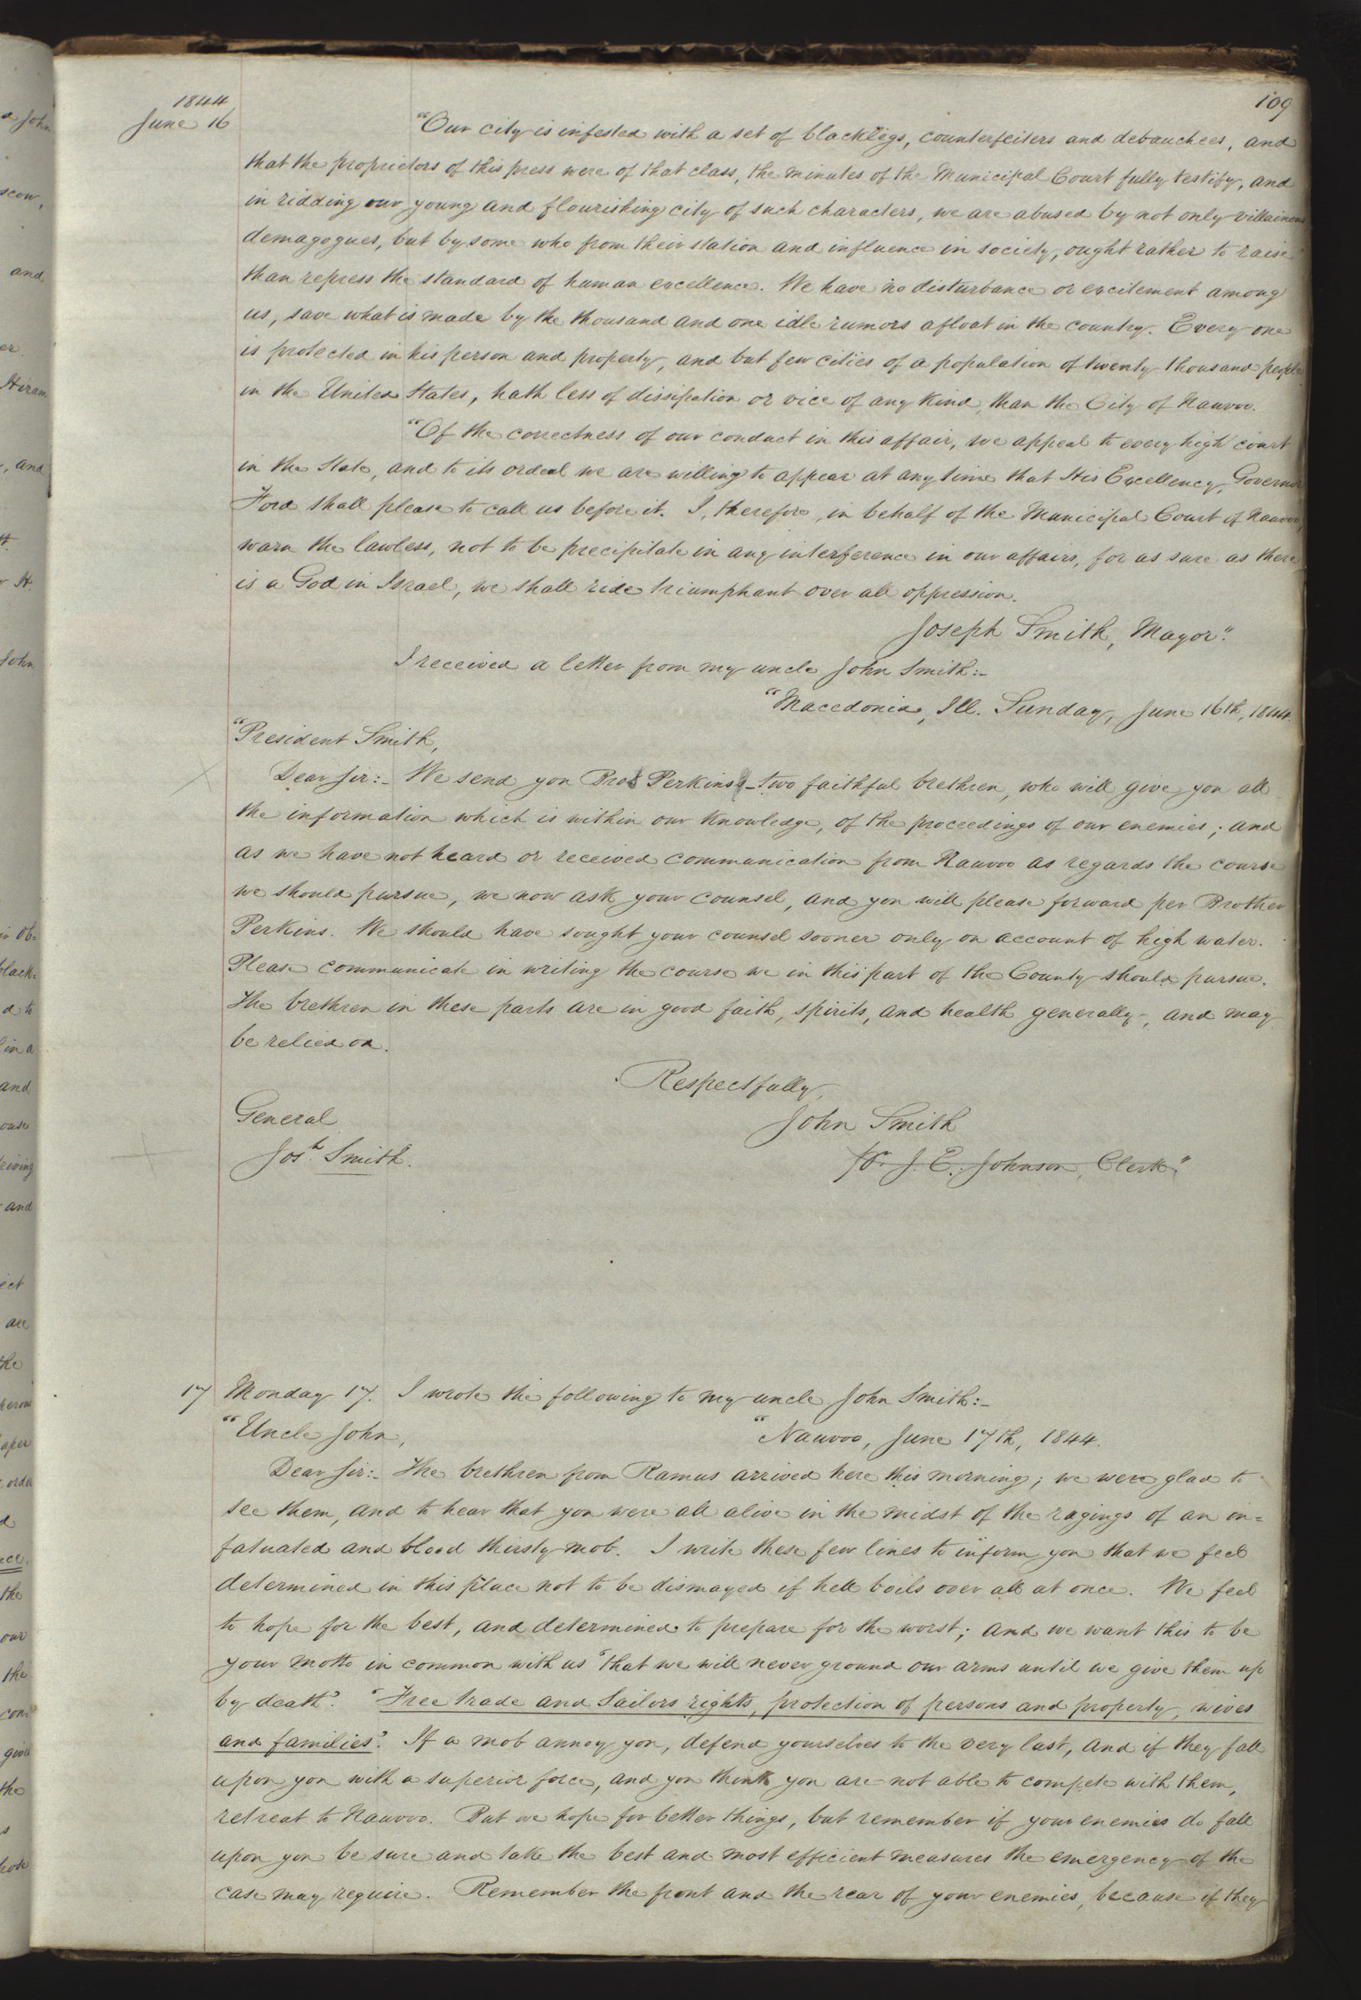 109
1844
June 16
"Our city is infested with a set of blacklegs, counterfeiters and debauchees, and
that the proprietors of this press were of that class, the minutes of the Municipal Court fully testify, and
in ridding our young and flourishing city of such characters, we are abused by not only villainous
demagogues, but by some who from their station and influence in society, ought rather to raise
than repress the standard of human excellence. We have no disturbance or excitement among
us, save what is made by the thousand and one idle rumors afloat in the country. Every one
is protected in his person and property, and but few cities of a population of twenty thousand people
in the United States, hath less of dissipation or vice of any kind, than the City of Nauvoo.
"Of the correctness of our conduct in this affair, we appeal to every high court
in the State, and to its ordeal we are willing to appear at any time that His Excellency, Governor
Ford shall please to call us before it. I, therefore, in behalf of the Municipal Court of Nauvoo,
warn the lawless, not to be precipitate in any interference in our affairs, for as sure as there
is a God in Israel, we shall ride triumphant over all oppression.
Joseph Smith, Mayor."
I received a letter from my uncle John Smith:-
"Macedonia, Ill. Sunday, June 16th, 1844.
"President Smith,
Dear Sir:- We send you Bro Perkins - two faithful brethren, who will give you all
the information which is within our knowledge, of the proceedings of our enemies; and
as we have not heard or received communication from Nauvoo as regards the course
we should pursue, we now ask your counsel, and you will please forward per Brother
Perkins. We should have sought your counsel sooner only on account of high water.
Please communicate in writing the course we in this part of the County should pursue.
The brethren in these parts are in good faith, spirits, and health generally, and may
be relied on.
Respectfully,
General John Smith
Josh. Smith. pr. J. E. Johnson, Clerk"
17 Monday 17. I wrote the following to my uncle John Smith:-
"Uncle John, "Nauvoo, June 17th, 1844.
Dear Sir:- The brethren from Ramus arrived here this morning; we were glad to
see them, and to hear that you were all alive in the midst of the ragings of an in=
fatuated and blood thirsty mob. I write these few lines to inform you that we feel
determined in this place not to be dismayed if hell boils over all at once. We feel
to hope for the best, and determined to prepare for the worst; and we want this to be
your motto in common with us "that we will never ground our arms until we give them up
by death". "Free trade and Sailors rights, protection of persons and property, wives
and families". If a mob annoy you, defend yourselves to the very last, and if they fall
upon you with a superior force, and you think you are not able to compete with them,
retreat to Nauvoo. But we hope for better things, but remember if your enemies do fall
upon you be sure and take the best and most efficient measures the emergency of the
case may require. Remember the front and the rear of your enemies, because if they